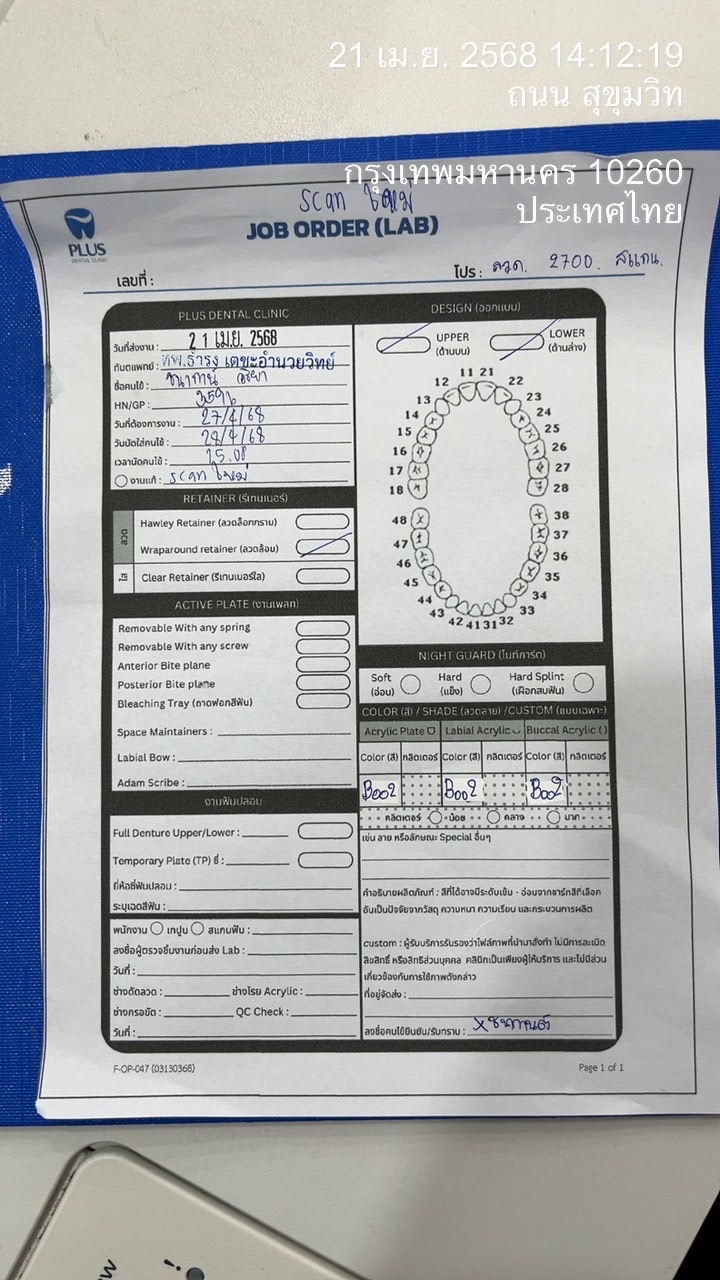 21 เม.ย. 2568 14:12:19
ถนน สุขุมวิท
กรุงเทพมหานคร 10260
ประเทศไทย
scan ใหม่
PLUS
DENTAL CLINIC
JOB ORDER (LAB)
เลขที่ :
โปร : ลวด. 2700. สแกน.
PLUS DENTAL CLINIC
วันที่ส่งงาน : 21 เม.ย. 2568
ทันตแพทย์ : ทพ.ธำรง เตชะอำนวยวิทย์
ชื่อคนไข้ :
HN/GP : 3596
วันที่ต้องการงาน : 27/4/68
วันนัดใส่คนไข้ : 28/4/68
เวลานัดคนไข้ : 15.00
งานแก้ : scan ใหม่
RETAINER (รีเทนเนอร์)
ลวด
Hawley Retainer (ลวดล็อกกราม)
Wraparound retainer (ลวดล้อม)
ใส
Clear Retainer (รีเทนเนอร์ใส)
ACTIVE PLATE (งานเพลท)
Removable With any spring
Removable With any screw
Anterior Bite plane
Posterior Bite plane
Bleaching Tray (ถาดฟอกสีฟัน)
Space Maintainers :
Labial Bow :
Adam Scribe :
งานฟันปลอม
Full Denture Upper/Lower :
Temporary Plate (TP) ซี่ :
ยี่ห้อซี่ฟันปลอม :
ระบุเฉดสีฟัน :
พนักงาน เทปูน สแกนฟัน :
ลงชื่อผู้ตรวจชิ้นงานก่อนส่ง Lab :
วันที่ :
ช่างดัดลวด : ช่างโรย Acrylic :
ช่างกรอขัด : QC Check :
วันที่ :
DESIGN (ออกแบบ)
UPPER
(ด้านบน)
LOWER
(ด้านล่าง)
11 21
12 22
13 23
14 24
15 25
16 26
17 27
18 28
48 38
47 37
46 36
45 35
44 34
43 33
42 41 31 32
NIGHT GUARD (ไนท์การ์ด)
Soft
(อ่อน)
Hard
(แข็ง)
Hard Splint
(เฝือกสบฟัน)
COLOR (สี) / SHADE (ลวดลาย) /CUSTOM (แบบเฉพาะ)
Acrylic Plate Labial Acrylic Buccal Acrylic ( )
Color (สี) กลิตเตอร์ Color (สี) กลิตเตอร์ Color (สี) กลิตเตอร์
B002 B002 B002
กลิตเตอร์ น้อย กลาง มาก
เช่น ลาย หรือลักษณะ Special อื่นๆ
คำอธิบายผลิตภัณฑ์ : สีที่ได้อาจมีระดับเข้ม - อ่อนจากชาร์ทสีที่เลือก
อันเป็นปัจจัยจากวัสดุ ความหนา ความเรียบ และกระบวนการผลิต
custom : ผู้รับบริการรับรองว่าไฟล์ภาพที่นำมาสั่งทำ ไม่มีการละเมิด
ลิขสิทธิ์ หรือสิทธิส่วนบุคคล คลินิกเป็นเพียงผู้ให้บริการ และไม่มีส่วน
เกี่ยวข้องกับการใช้ภาพดังกล่าว
ที่อยู่จัดส่ง :
ลงชื่อคนไข้ยืนยัน/รับทราบ : x
F-OP-047 (03130368)
Page 1 of 1